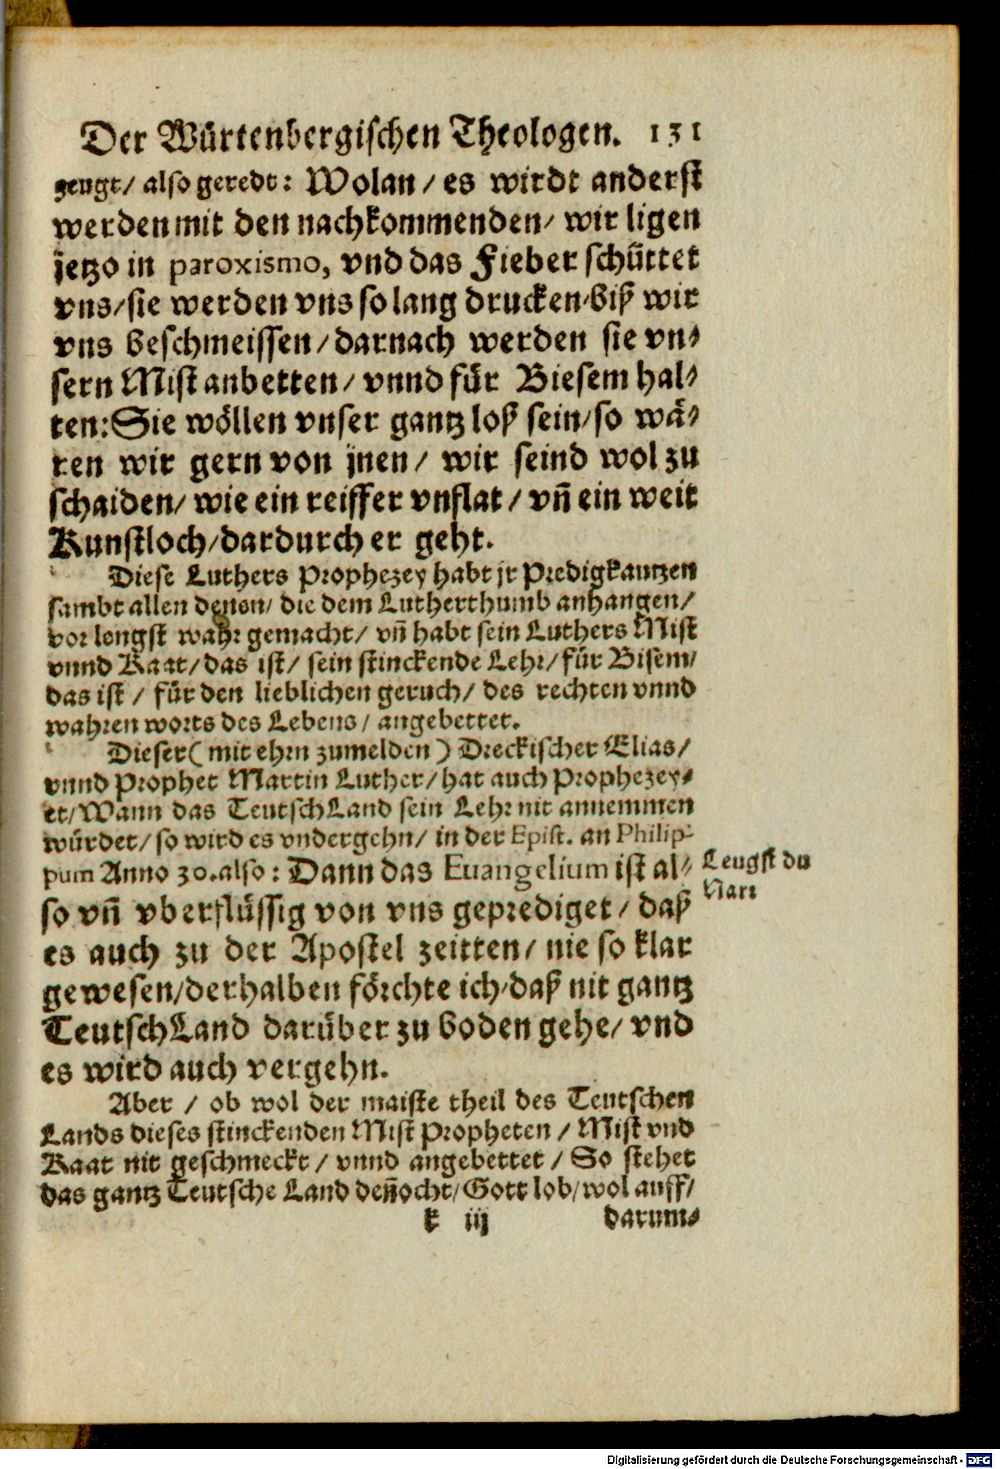 Der Würtenbergischen Theologen. 131
zeugt/ also geredt: Wolan/ es wirdt anderst
werden mit den nachkommenden/ wir ligen
jetzo in paroxismo, vnd das Fieber schüttet
vns/ sie werden vns so lang drucken/ biß wir
vns beschmeissen/ darnach werden sie vn⸗
sern Mist anbetten/ vnnd für Biesem hal⸗
ten: Sie wöllen vnser gantz loß sein/ so wä⸗
ren wir gern von jnen/ wir seind wol zu
schaiden/ wie ein reiffer vnflat/ vñ ein weit
Kunstloch/ dardurch er geht.
Diese Luthers Prophezey habt jr Predigkautzen
sambt allen denen/ die dem Lutherthumb anhangen/
vor lengst wahr gemacht/ vñ habt sein Luthers Mist
vnnd Kaat/ das ist/ sein stinckende Lehr/ für Bisem/
das ist/ für den lieblichen geruch/ des rechten vnnd
wahren worts des Lebens/ angebettet.
Dieser (mit ehrn zumelden) Dreckischer Elias/
vnnd Prophet Martin Luther/ hat auch Prophezey⸗
et/ Wann das TeutschLand sein Lehr nit annemmen
würdet/ so wird es vndergehn/ in der Epist. an Philip-
pum Anno 30. also: Dann das Euangelium ist al⸗
Leugst du
Narr
so vñ vberflüssig von vns geprediget/ daß
es auch zu der Apostel zeitten/ nie so klar
gewesen/ derhalben förchte ich/ daß nit gantz
TeutschLand darüber zu boden gehe/ vnd
es wird auch vergehn.
Aber/ ob wol der maiste theil des Teutschen
Lands dieses stinckenden Mist Propheten/ Mist vnd
Kaat nit geschmeckt/ vnnd angebettet/ So stehet
das gantz Teutsche Land deñocht/ Gott lob/ wol auff/
k iij darum⸗
Digitalisierung gefördert durch die Deutsche Forschungsgemeinschaft - DFG